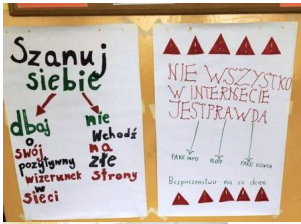 Szanuj
siebie
dbaj
o
swój
pozytywny
wizerunek
w
sieci
nie
wchodź
na
złe
strony
NIE WSZYSTKO
W INTERNECIE
JEST PRAWDA
FAKE INFO
FAKE KONTA
Bezpieczeństwo na co dzień